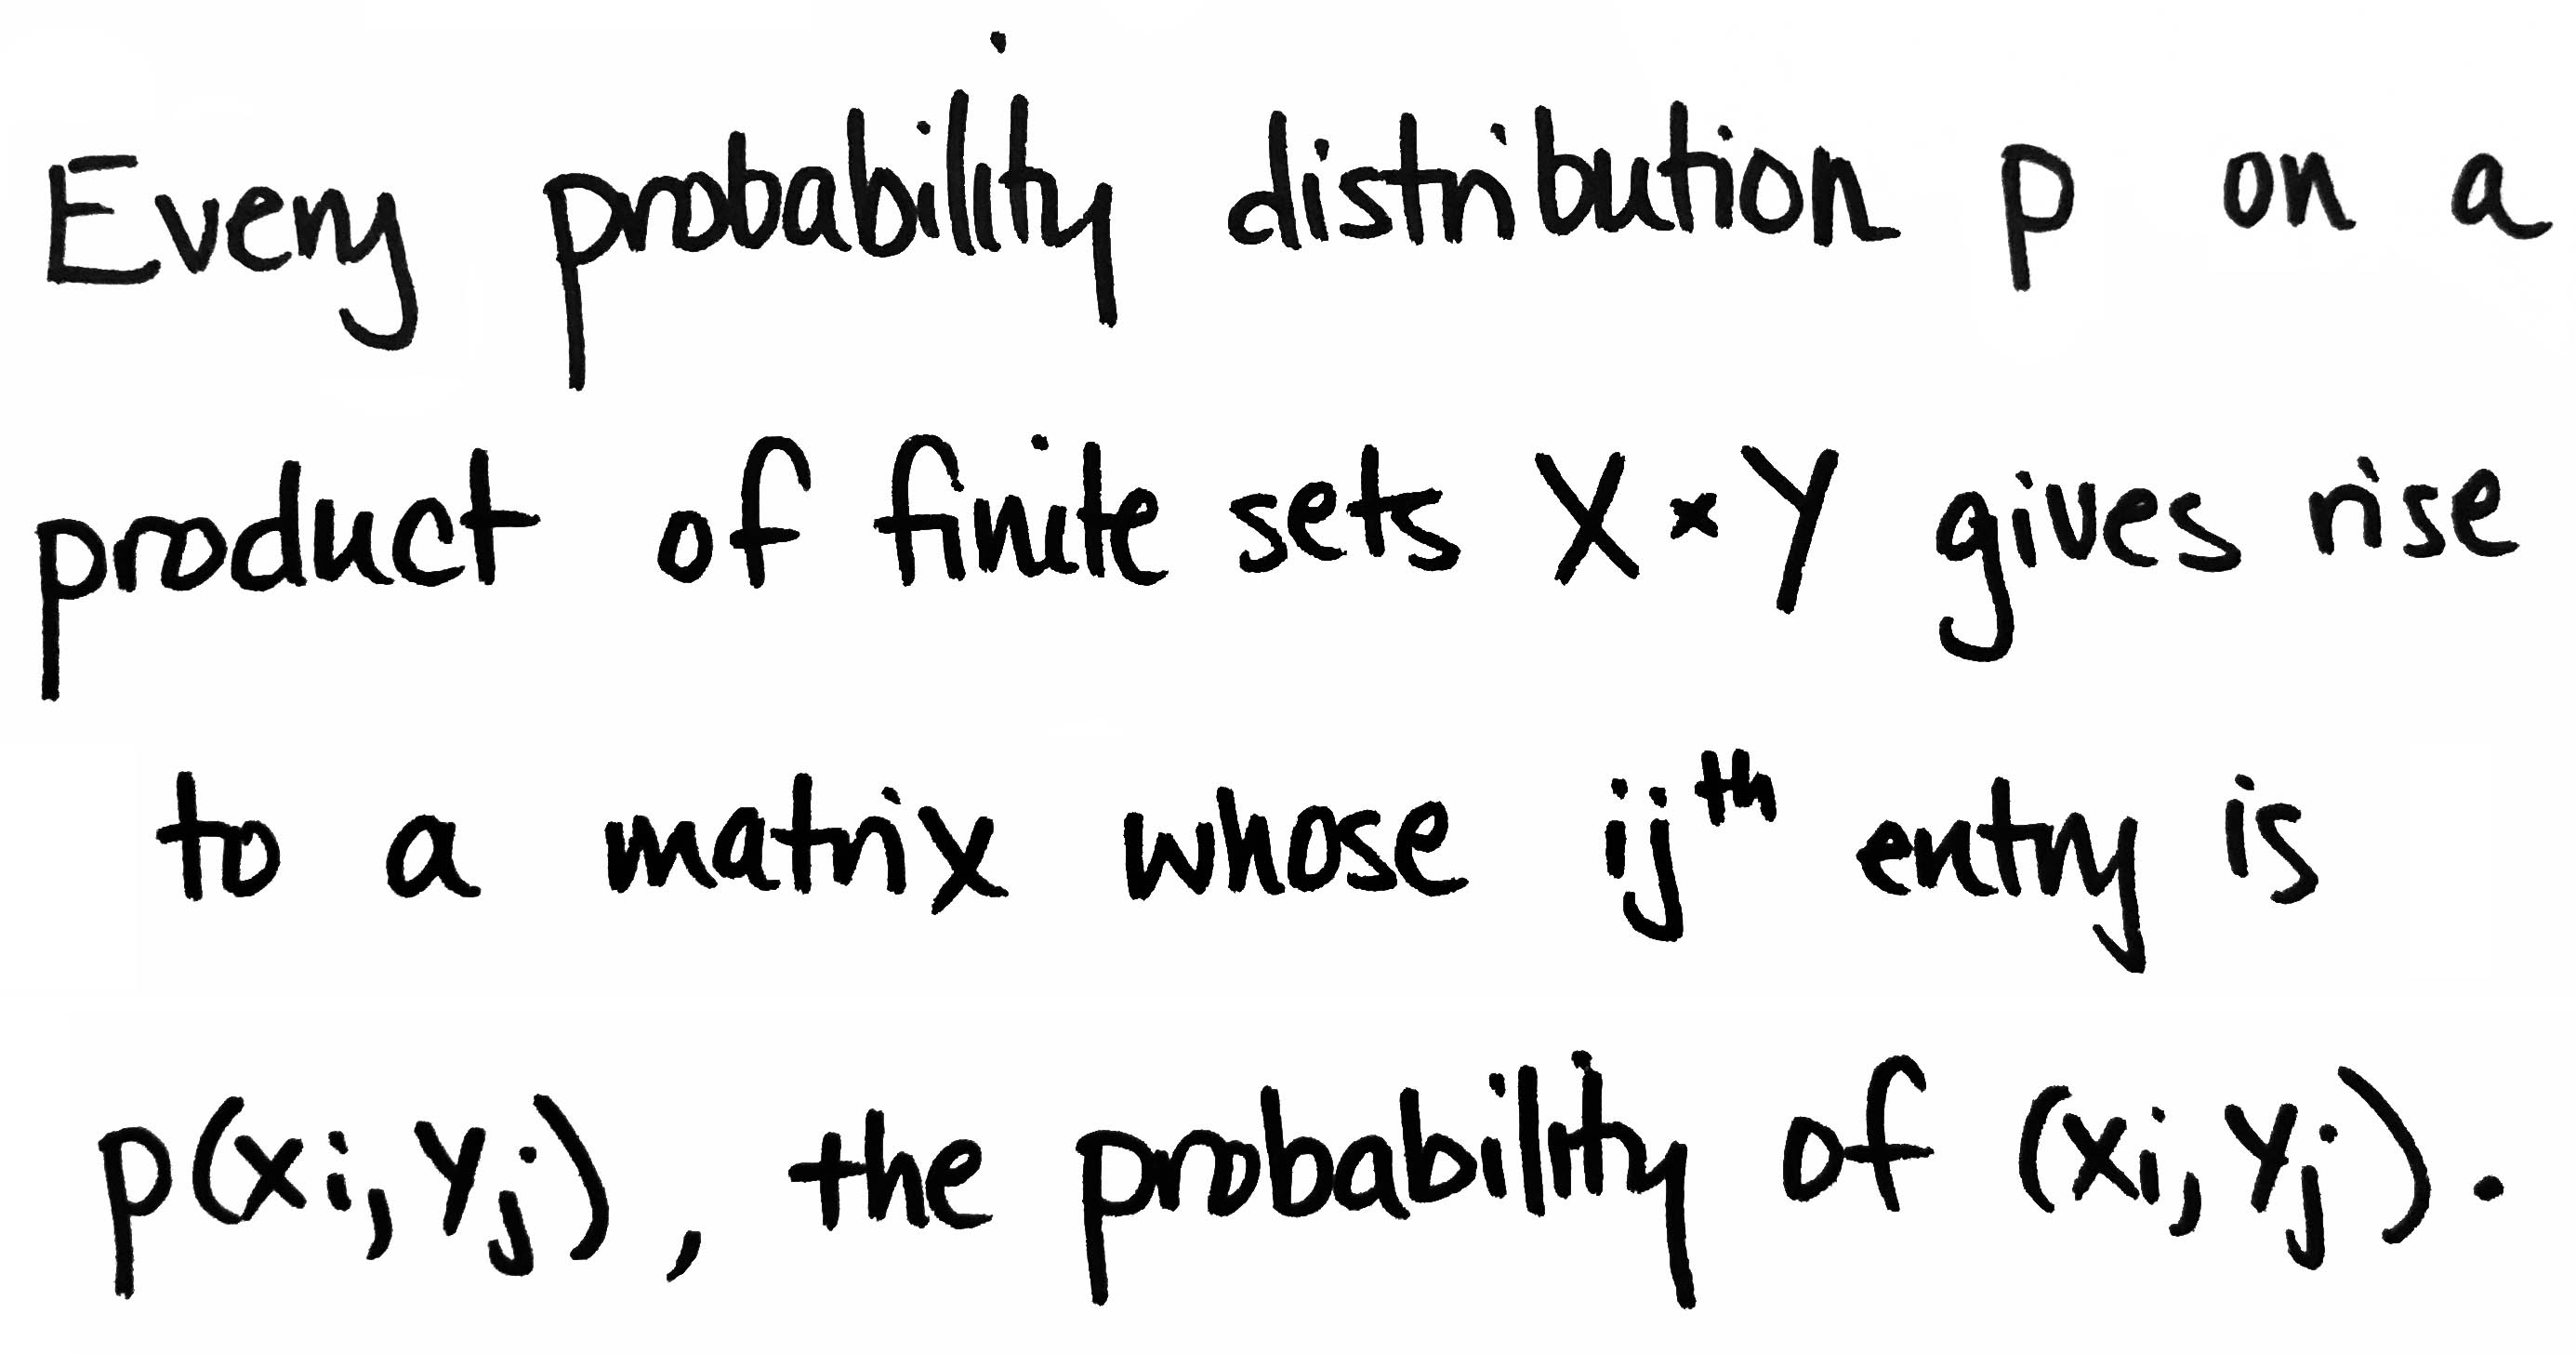 Every probability distribution p on a
product of finite sets X × Y gives rise
to a matrix whose ijᵗʰ entry is
p(xᵢ, yⱼ), the probability of (xᵢ, yⱼ).